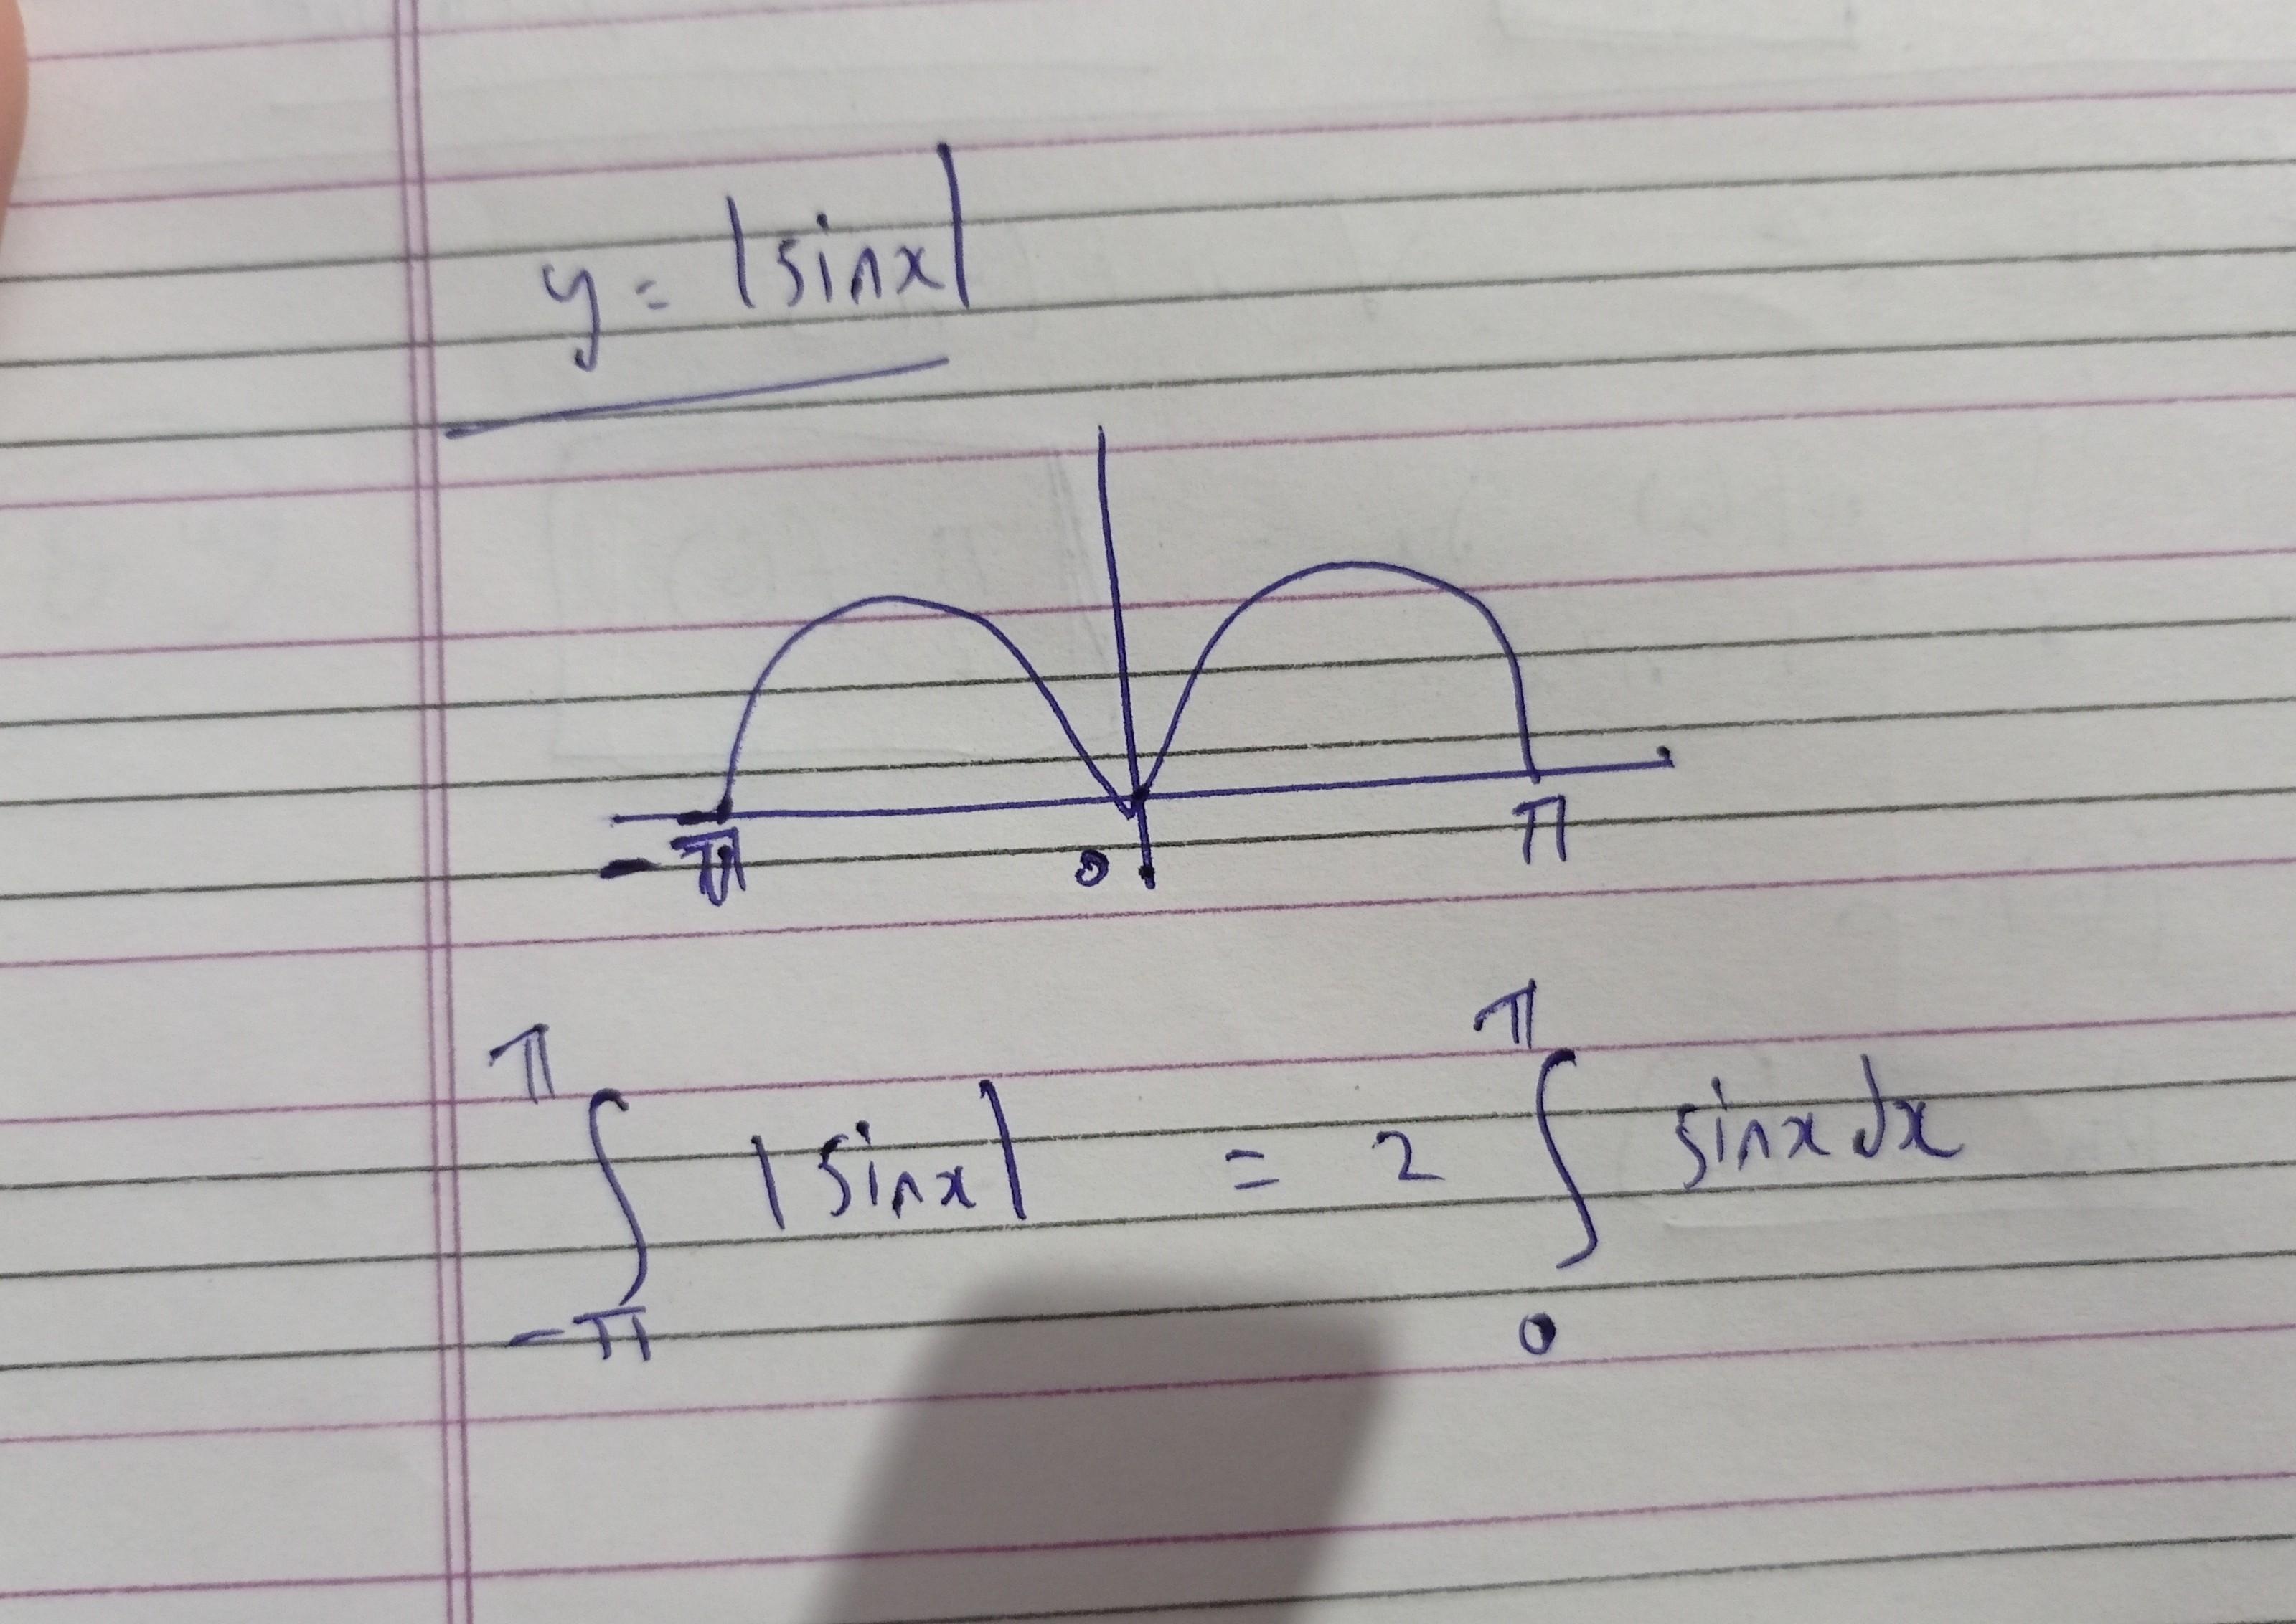 y = |sinx|
-π 0 π
∫_{-π}^{π} |sinx| = 2 ∫_{0}^{π} sinx dx